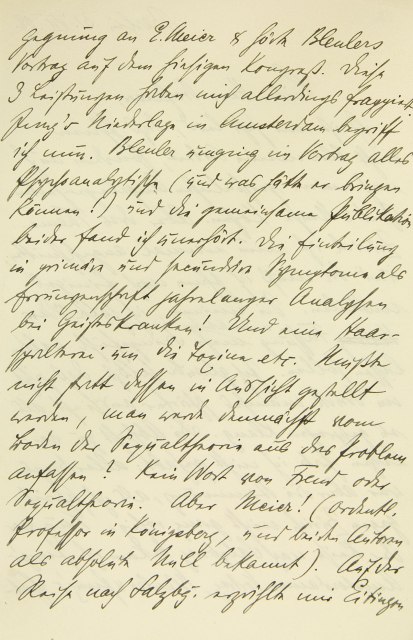 gegnung an E. Meier & hörte Bleulers
Vortrag auf dem hiesigen Kongreß. Diese
3 Leistungen haben mich allerdings frappiert.
Jung's Niederlage in Amsterdam begriff
ich nun. Bleuler umging im Vortrag alles
Psychoanalytische (und was hätte er bringen
können!) und die gemeinsame Publikation
beider fand ich unerhört. Die Einteilung
in primäre und secundäre Symptome als
Errungenschaft jahrelanger Analysen
bei Geisteskranken! Und eine Haar-
spalterei um die Toxine etc. Mußte
nicht statt dessen in Aussicht gestellt
werden, man werde demnächst vom
Boden der Sexualtheorie aus das Problem
anfassen? Kein Wort von Freud oder
Sexualtheorie. Aber Meier! (ordentl.
Professor in Königsberg, und beiden Autoren
als absolute Null bekannt). Auf der
Reise nach Salzbg. erzählte mir Eitingon